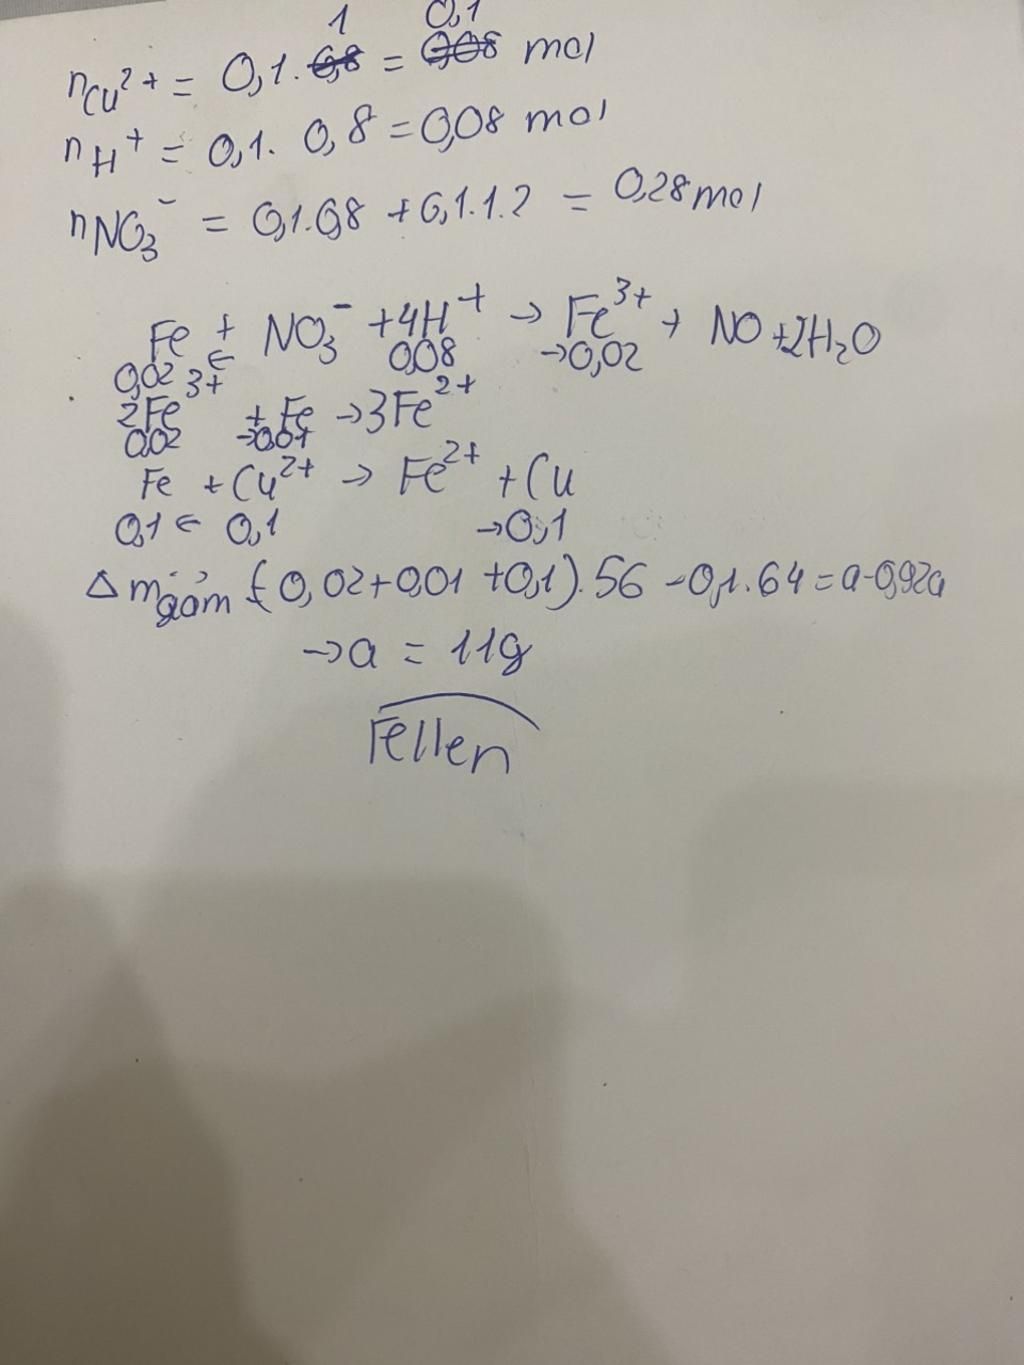 nCu²⁺ = 0,1 . 1 = 0,1 mol
nH⁺ = 0,1 . 0,8 = 0,08 mol
nNO₃⁻ = 0,1.0,8 + 0,1.1.2 = 0,28 mol
Fe + NO₃⁻ + 4H⁺ → Fe³⁺ + NO + 2H₂O
0,02 ← 0,08 → 0,02
2Fe³⁺ + Fe → 3Fe²⁺
0,02 → 0,01
Fe + Cu²⁺ → Fe²⁺ + Cu
0,1 ← 0,1 → 0,1
Δm giảm = (0,02+0,01+0,1).56 - 0,1.64 = a-0,92a
→ a = 11g
Fellen